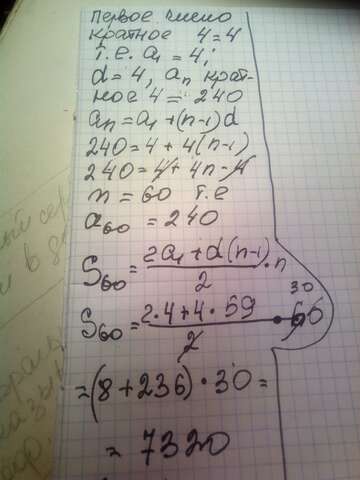 первое число
кратное 4=4
т.е. a₁=4;
d=4, aₙ крат-
ное 4=240
aₙ=a₁+(n-1)d
240=4+4(n-1)
240=4+4n-4
n=60 т.е
a₆₀=240
S₆₀=(2a₁+d(n-1))/2·n
30
S₆₀=(2·4+4·59)/2·60
=(8+236)·30=
=7320